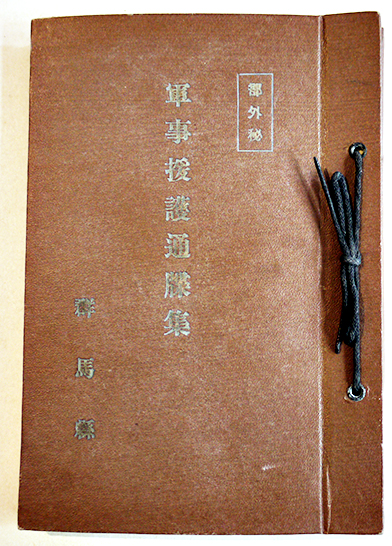 部外秘
軍事援護通牒集
群馬縣